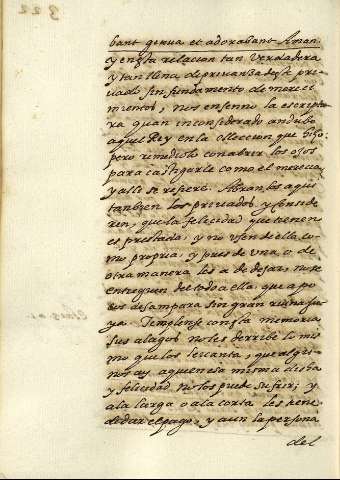 322
bant genua et adorabant Aman.
y en esta relacion tan verdadera
y tan llena de privanza deste pri
vado sin fundamento de mereci
mientos, nos enseño la escriptu
ra quan inconsiderado andubo
aquel Rey en la elleccion que hizo:
pero remediolo con abrir los ojos
para castigarle como el merecia
y alli se refiere. Abran los aqui
tambien los privados, y conside
ren, que la felicidad que tienen
es prestada, y no usen de ella co
mo propria; y pues de una, o de
otra manera les a de dejar, no se
entreguen del todo a ella, que a po
cos desampara sin gran ruina su
ya. Templense con esta memoria
sus alagos no les derribe lo mis
mo que los levanta, que algu
nos ay a quien esa misma dicha
y felicidad no los puede sufrir; y
a la larga o a la corta les viene
de dar el pago, y aun la persona
del